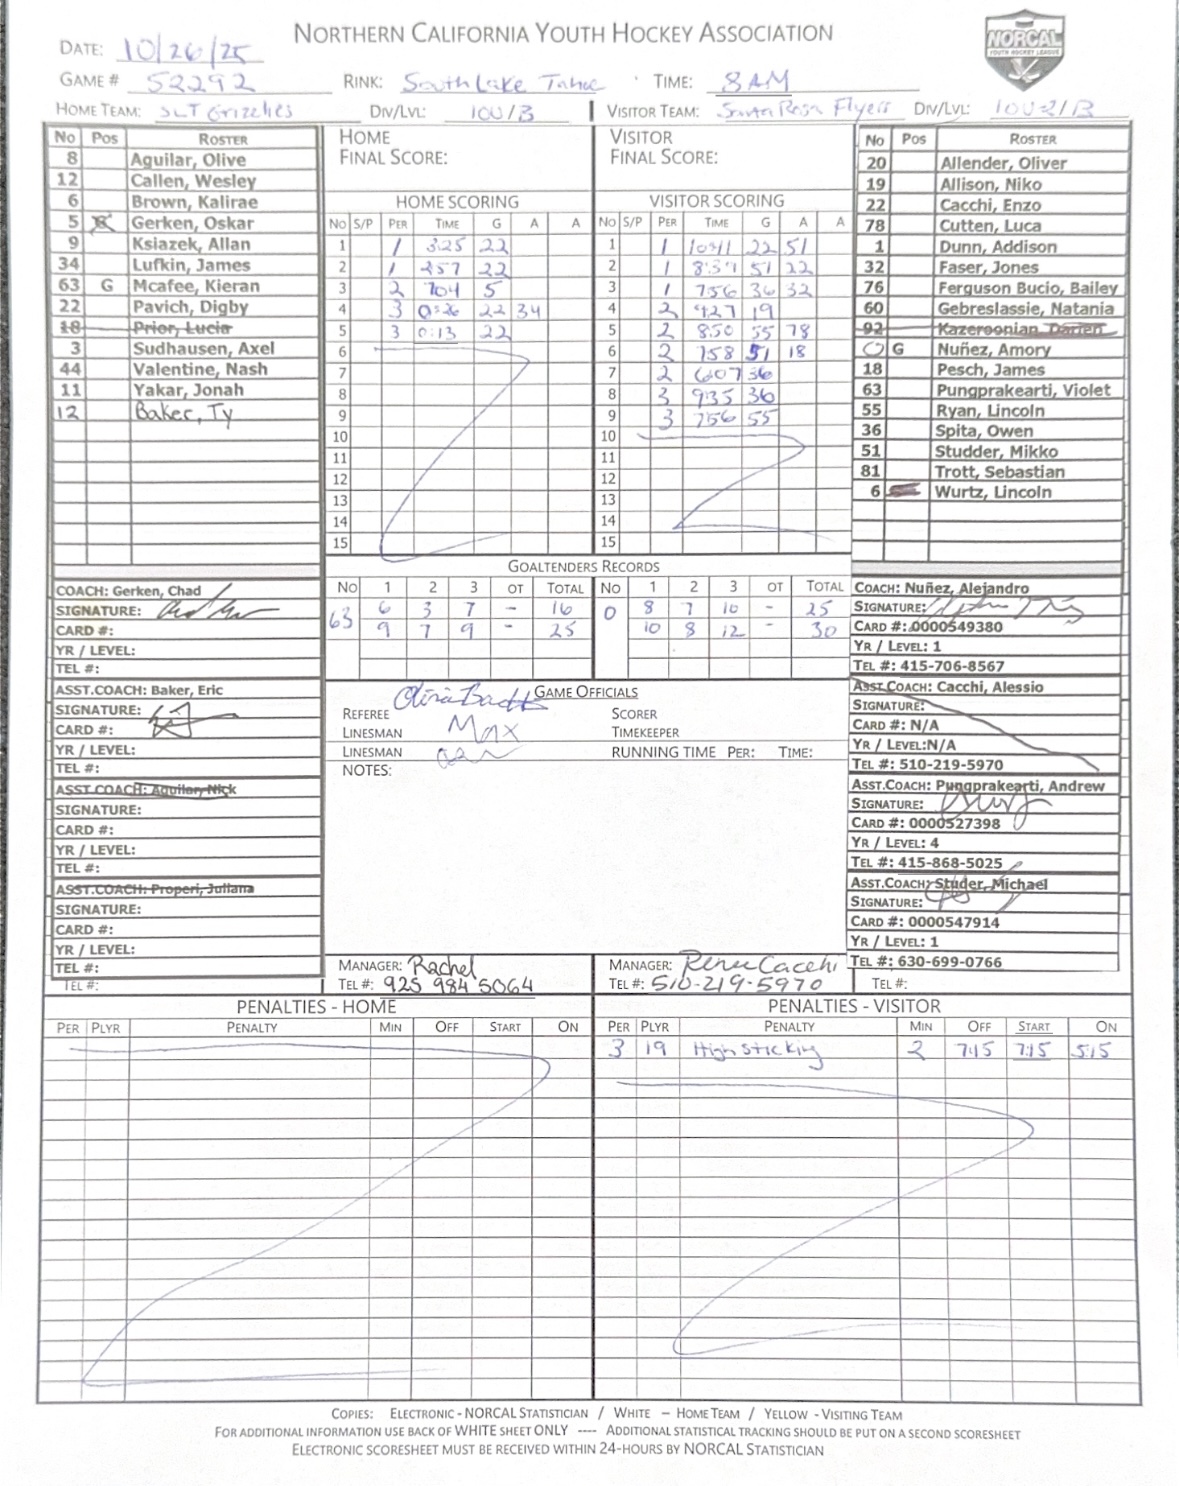 NORTHERN CALIFORNIA YOUTH HOCKEY ASSOCIATION
NORCAL
YOUTH HOCKEY LEAGUE
DATE: 10/26/25
GAME # 52292 RINK: South Lake Tahoe TIME: 8AM
HOME TEAM: SLT Grizzlies DIV/LVL: 10U/B VISITOR TEAM: Santa Rosa Flyers DIV/LVL: 10U-2/B
No Pos ROSTER
8 Aguilar, Olive
12 Callen, Wesley
6 Brown, Kalirae
5 Gerken, Oskar
9 Ksiazek, Allan
34 Lufkin, James
63 G Mcafee, Kieran
22 Pavich, Digby
18 Prior, Lucia
3 Sudhausen, Axel
44 Valentine, Nash
11 Yakar, Jonah
12 Baker, Ty
HOME
FINAL SCORE:
HOME SCORING
NO S/P PER TIME G A A
1 1 325 22
2 1 257 22
3 2 704 5
4 3 0:26 22 34
5 3 0:13 22
6
7
8
9
10
11
12
13
14
15
VISITOR
FINAL SCORE:
VISITOR SCORING
NO S/P PER TIME G A A
1 1 1041 22 51
2 1 51 22
3 1 756 36 32
4 2 927 19
5 2 850 55 78
6 2 758 51 18
7 2 607 36
8 3 935 36
9 3 756 55
10
11
12
13
14
15
No Pos ROSTER
20 Allender, Oliver
19 Allison, Niko
22 Cacchi, Enzo
78 Cutten, Luca
1 Dunn, Addison
32 Faser, Jones
76 Ferguson Bucio, Bailey
60 Gebreslassie, Natania
92 Kazeroonian, Darien
0 G Nuñez, Amory
18 Pesch, James
63 Pungprakearti, Violet
55 Ryan, Lincoln
36 Spita, Owen
51 Studder, Mikko
81 Trott, Sebastian
6 Wurtz, Lincoln
GOALTENDERS RECORDS
NO 1 2 3 OT TOTAL NO 1 2 3 OT TOTAL
63 6 3 7 - 16 0 8 7 10 - 25
9 7 9 - 25 10 8 12 - 30
COACH: Gerken, Chad
SIGNATURE:
CARD #:
YR / LEVEL:
TEL #:
ASST.COACH: Baker, Eric
SIGNATURE:
CARD #:
YR / LEVEL:
TEL #:
ASST.COACH: Aguilar, Nick
SIGNATURE:
CARD #:
YR / LEVEL:
TEL #:
ASST.COACH: Properi, Juliana
SIGNATURE:
CARD #:
YR / LEVEL:
TEL #:
TEL #:
GAME OFFICIALS
REFEREE Olivia SCORER
LINESMAN Max TIMEKEEPER
LINESMAN RUNNING TIME PER: TIME:
NOTES:
MANAGER: Rachel
TEL #: 925 984 5064
MANAGER: Renee Cacchi
TEL #: 510-219-5970
COACH: Nuñez, Alejandro
SIGNATURE:
CARD #:0000549380
YR / LEVEL: 1
TEL #: 415-706-8567
ASST.COACH: Cacchi, Alessio
SIGNATURE:
CARD #: N/A
YR / LEVEL:N/A
TEL #: 510-219-5970
ASST.COACH: Pungprakearti, Andrew
SIGNATURE:
CARD #: 0000527398
YR / LEVEL: 4
TEL #: 415-868-5025
ASST.COACH: Studer, Michael
SIGNATURE:
CARD #: 0000547914
YR / LEVEL: 1
TEL #: 630-699-0766
TEL #:
PENALTIES - HOME
PER PLYR PENALTY MIN OFF START ON
PENALTIES - VISITOR
PER PLYR PENALTY MIN OFF START ON
3 19 High sticking 2 7:15 7:15 5:15
COPIES: ELECTRONIC - NORCAL STATISTICIAN / WHITE – HOME TEAM / YELLOW - VISITING TEAM
FOR ADDITIONAL INFORMATION USE BACK OF WHITE SHEET ONLY ---- ADDITIONAL STATISTICAL TRACKING SHOULD BE PUT ON A SECOND SCORESHEET
ELECTRONIC SCORESHEET MUST BE RECEIVED WITHIN 24-HOURS BY NORCAL STATISTICIAN